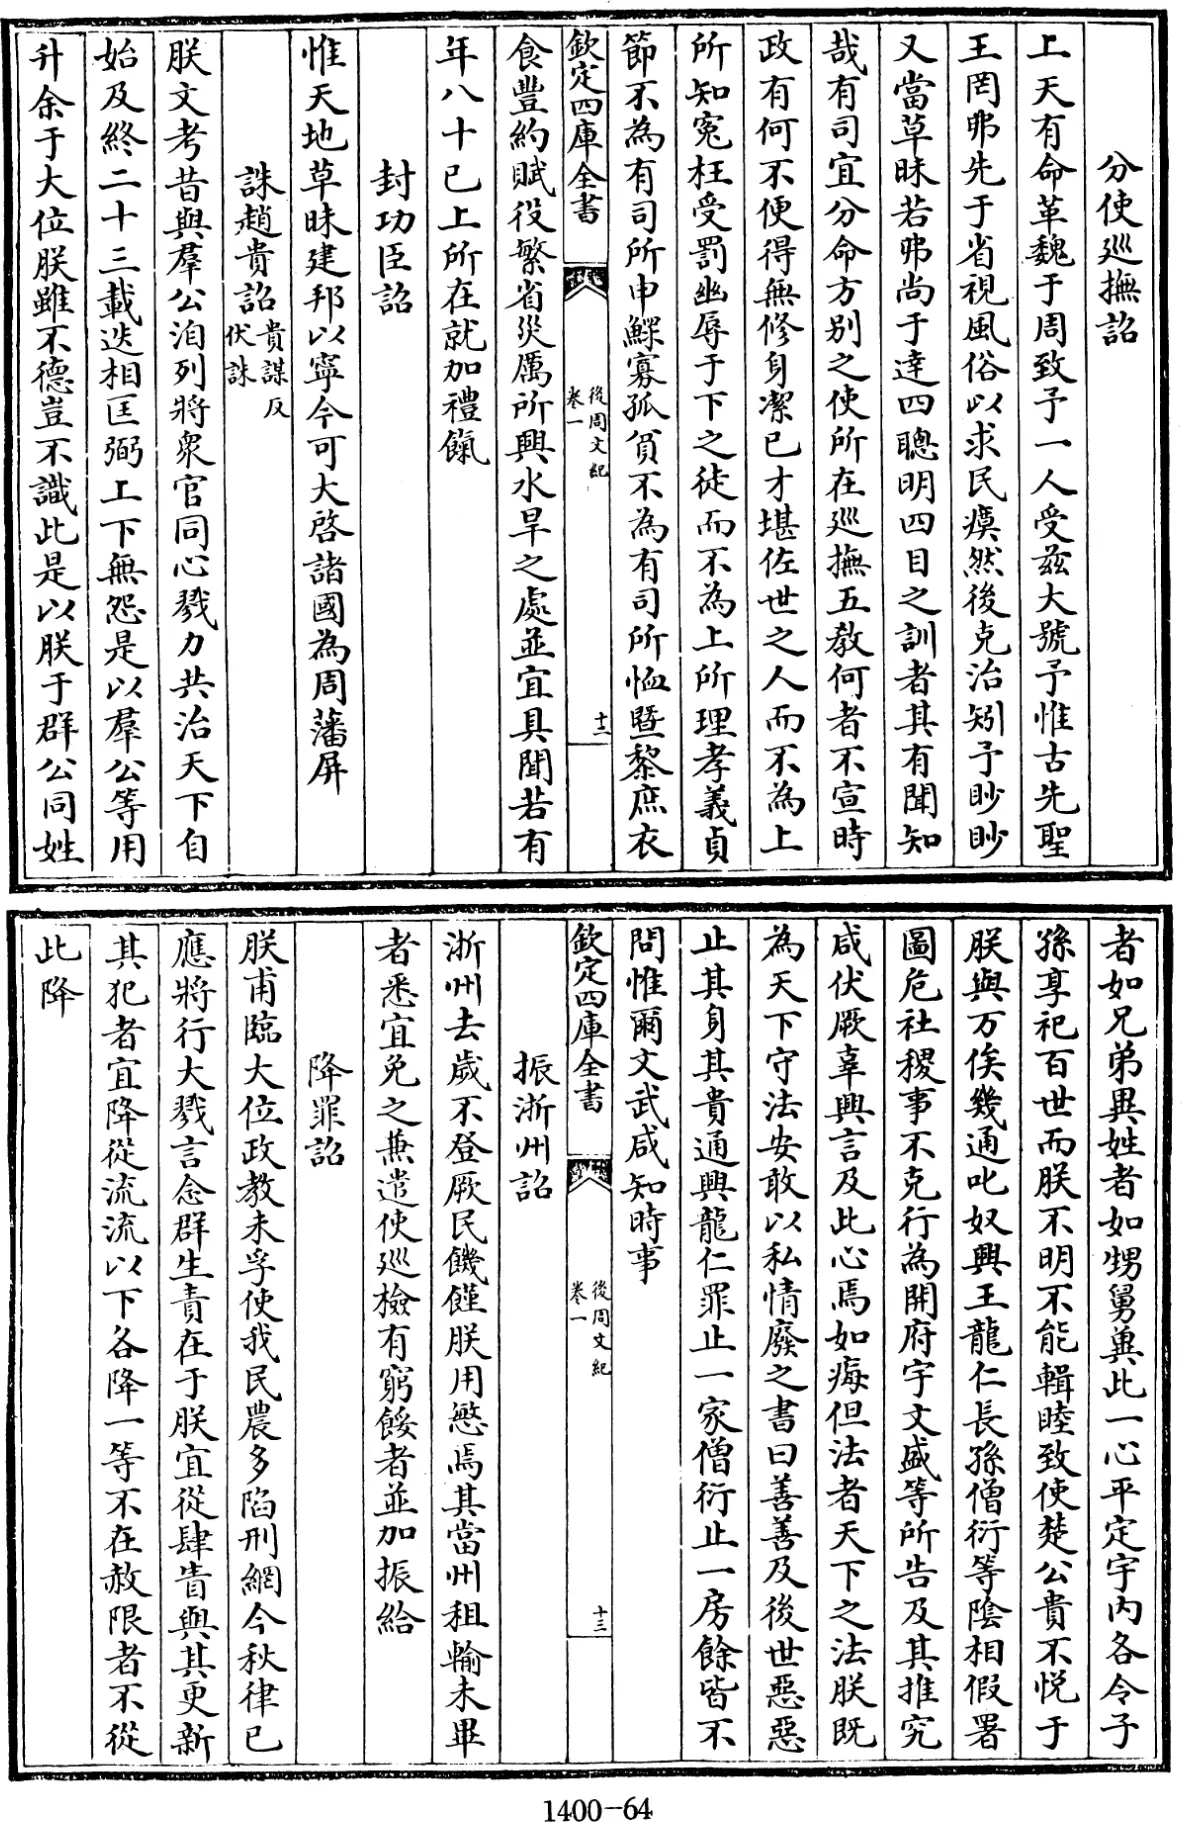 分使廵撫詔
上天有命革魏于周致予一人受兹大號予惟古先聖
王罔弗先于省視風俗以求民瘼然後克治矧予眇眇
又當草昧若弗尚于達四聰明四目之訓者其有聞知
哉有司宜分命方别之使所在廵撫五敎何者不宣時
政有何不便得無修身潔己才堪佐世之人而不為上
所知寃枉受罰幽辱于下之徒而不為上所理孝義貞
節不為有司所申鰥寡孤貧不為有司所恤暨黎庶衣
欽定四庫全書
後周文紀
卷一
十二
食豐約賦役繁省災厲所興水旱之處並宜具聞若有
年八十已上所在就加禮餼
封功臣詔
惟天地草昧建邦以寧今可大啓諸國為周藩屏
誅趙貴詔貴謀反
伏誅
朕文考昔與羣公洎列將衆官同心戮力共治天下自
始及終二十三載迭相匡弼上下無怨是以羣公等用
升余于大位朕雖不德豈不識此是以朕于群公同姓
者如兄弟異姓者如甥舅冀此一心平定宇内各令子
孫享祀百世而朕不明不能輯睦致使楚公貴不悦于
朕與万俟幾通叱奴興王龍仁長孫僧衍等陰相假署
圖危社稷事不克行為開府宇文盛等所告及其推究
咸伏厥辜興言及此心焉如痗但法者天下之法朕既
為天下守法安敢以私情廢之書曰善善及後世惡惡
止其身其貴通興龍仁罪止一家僧衍止一房餘皆不
問惟爾文武咸知時事
欽定四庫全書
後周文紀
卷一
十三
振浙州詔
浙州去歲不登厥民饑饉朕用慜焉其當州租輸未畢
者悉宜免之兼遣使廵檢有窮餒者並加振給
降罪詔
朕甫臨大位政敎未孚使我民農多陷刑網今秋律已
應將行大戮言念群生責在于朕宜從肆眚與其更新
其犯者宜降從流流以下各降一等不在赦限者不從
此降
1400-64